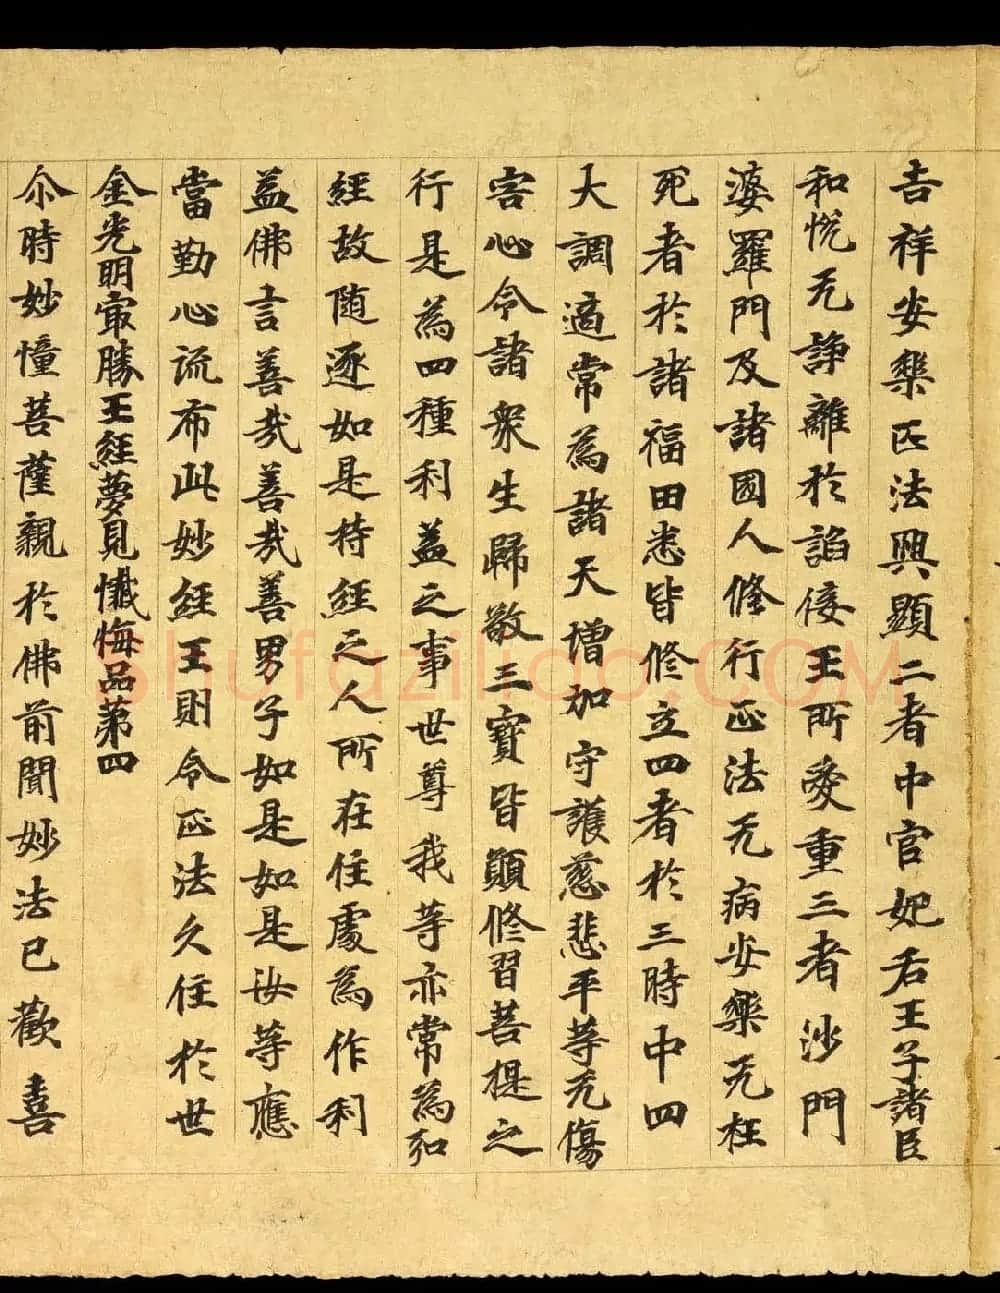 吉祥安樂正法興顯二者中宫妃后王子諸臣
和悅无諍離於諂佞王所愛重三者沙門
婆羅門及諸國人修行正法无病安樂无枉
死者於諸福田悉皆修立四者於三時中四
大調適常為諸天增加守護慈悲平等无傷
害心令諸衆生歸敬三寶皆願修習菩提之
行是為四種利益之事世尊我等亦常為弘
經故随逐如是持經之人所在住處為作利
益佛言善哉善哉善男子如是如是汝等應
當勤心流布此妙經王則令正法久住於世
金光明寂勝王經夢見懺悔品第四
尒時妙幢菩薩親於佛前聞妙法已歡喜
Shufaziliao.COM